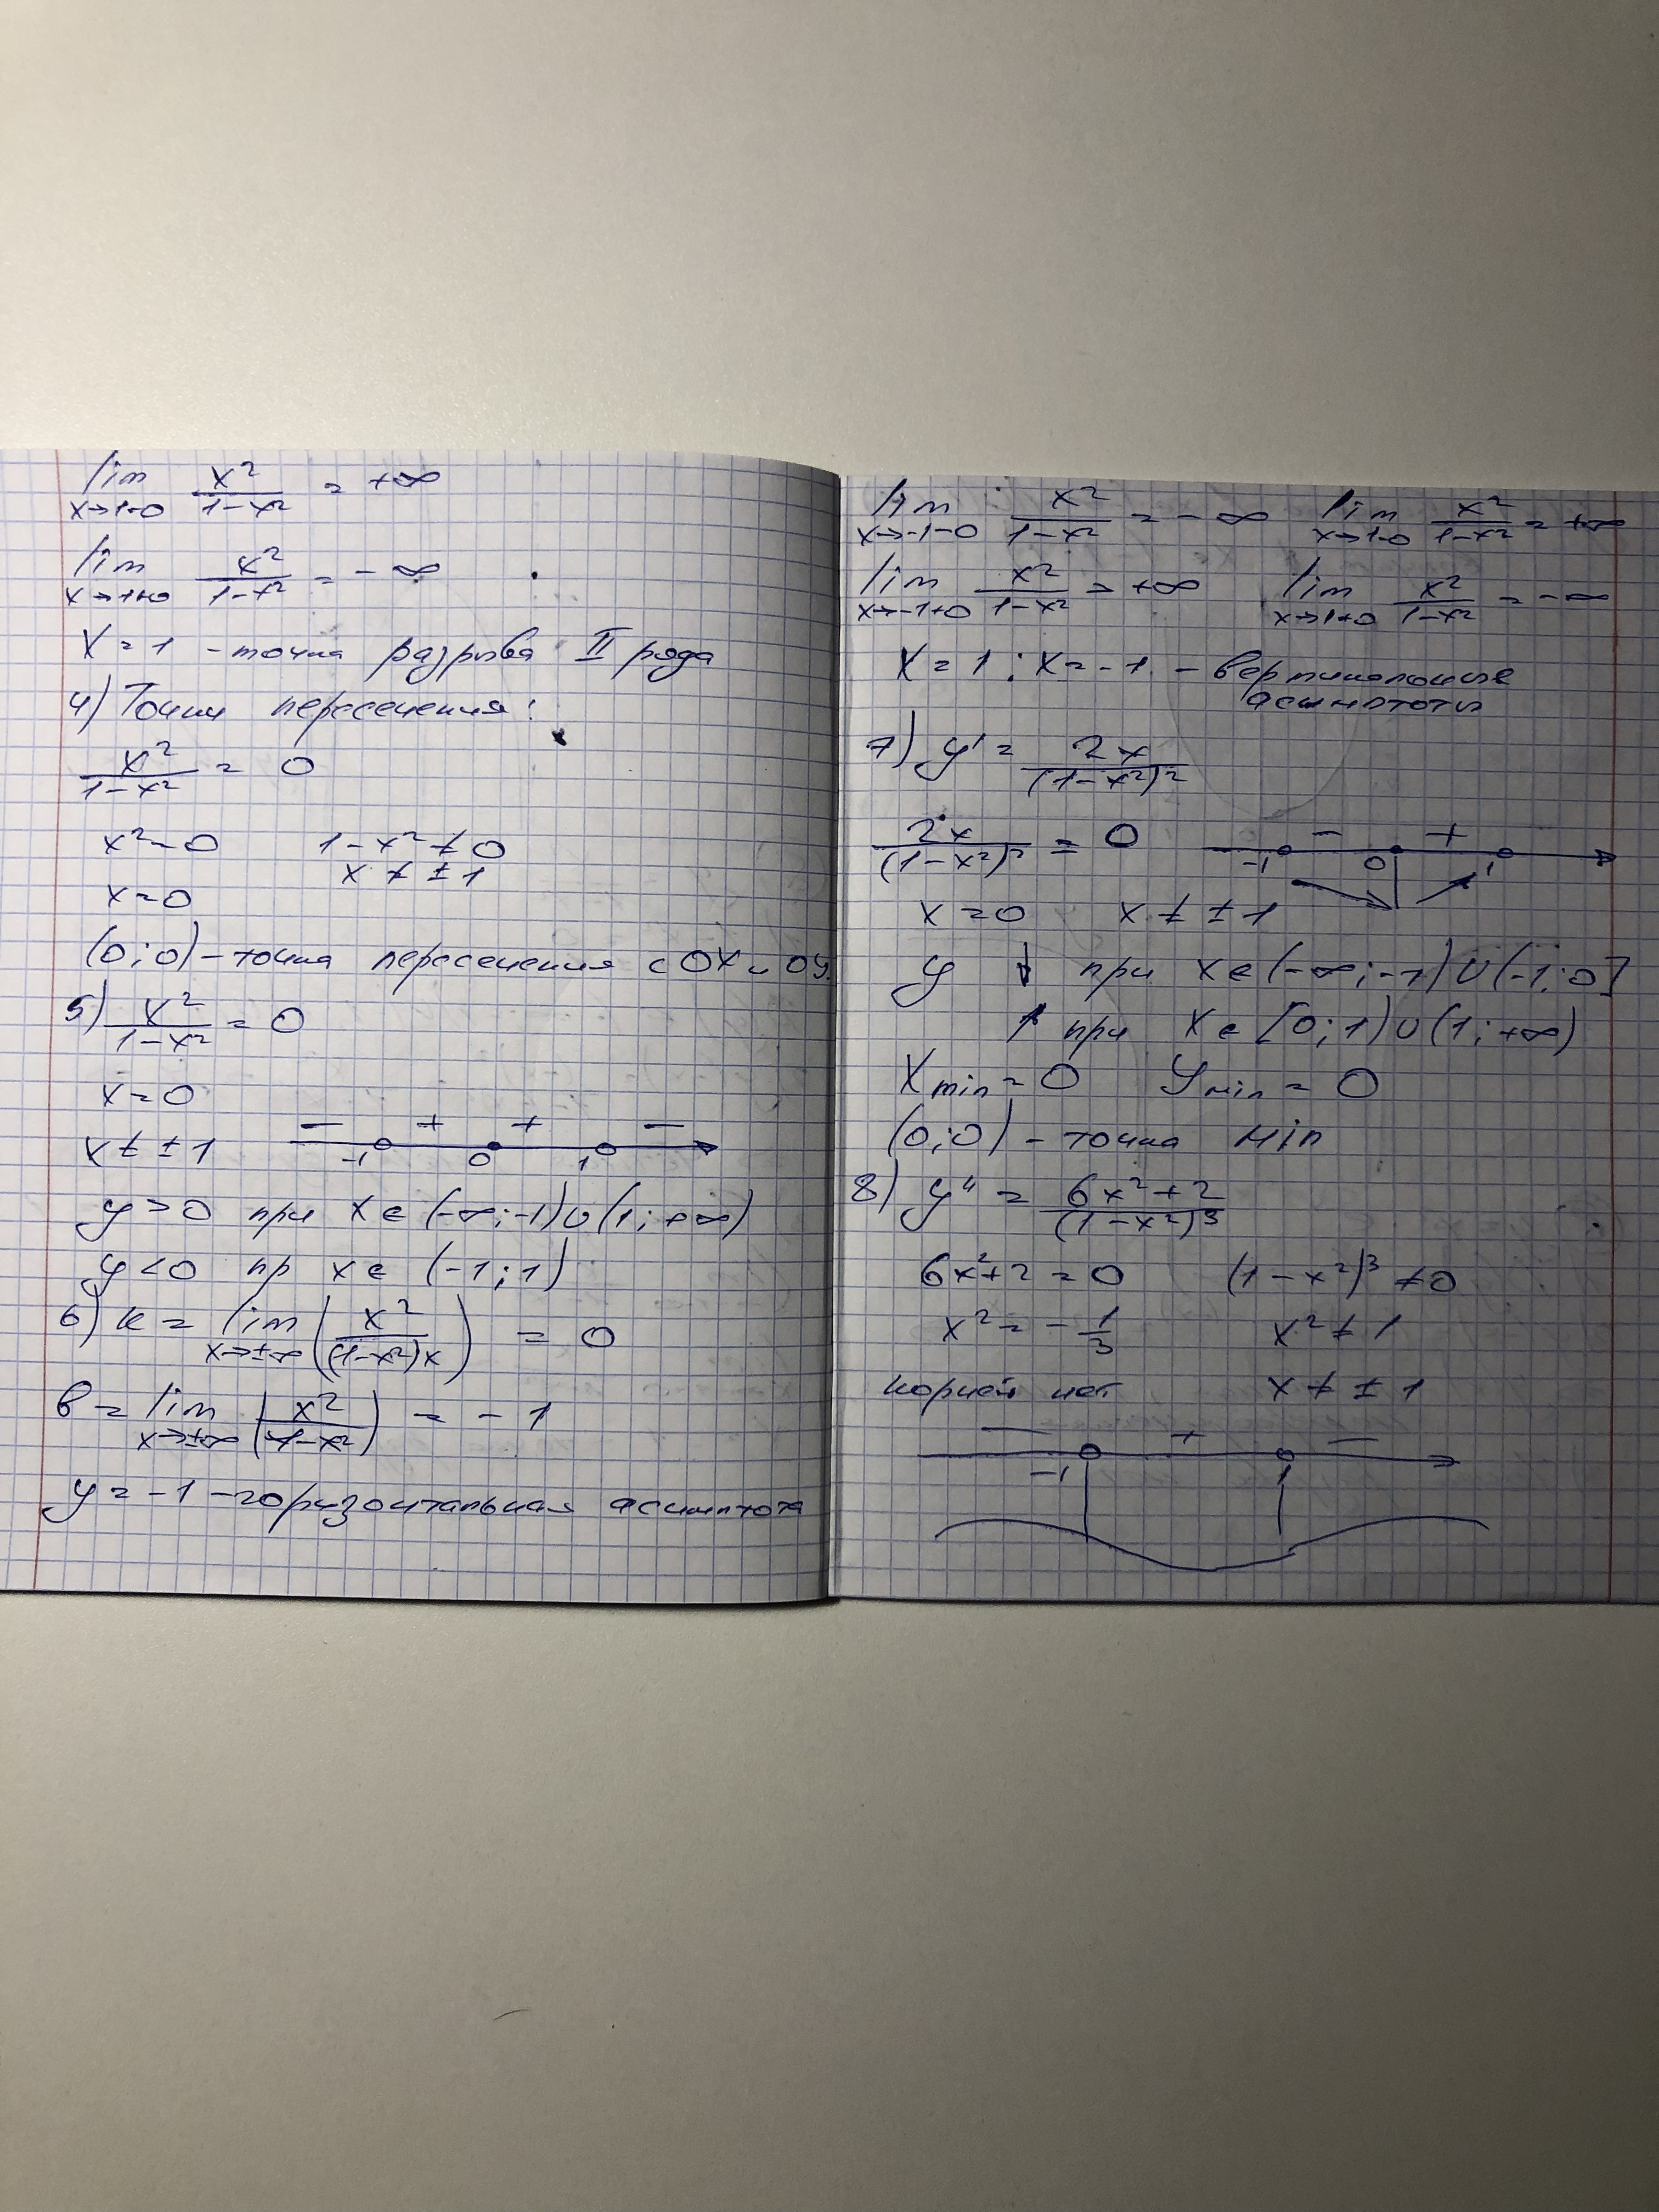 lim x→1-0 x²/(1-x²) = +∞
lim x→1+0 x²/(1-x²) = -∞
X = 1 - точка разрыва II рода
4) Точки пересечения:
x²/(1-x²) = 0
x² = 0 1-x² ≠ 0
x ≠ ±1
x = 0
(0;0) - точка пересечения с OX и OY.
5) x²/(1-x²) = 0
x = 0
x ≠ ±1 − + + −
-1 0 1
y > 0 при x ∈ (-∞;-1)∪(1;+∞)
y < 0 пр x ∈ (-1;1)
6) k = lim x→±∞ (x²/((1-x²)x)) = 0
b = lim x→±∞ (x²/(1-x²)) = -1
y = -1 - горизонтальная асимптота
lim x→-1-0 x²/(1-x²) = -∞ lim x→1-0 x²/(1-x²) = +∞
lim x→-1+0 x²/(1-x²) = +∞ lim x→1+0 x²/(1-x²) = -∞
X = 1; X = -1. - вертикальные
асимптоты
7) y' = 2x/(1-x²)²
2x/(1-x²)² = 0 − +
-1 0 1
x = 0 x ≠ ±1
y ↓ при x ∈ (-∞;-1)∪(-1;0]
↑ при x ∈ [0;1)∪(1;+∞)
Xmin = 0 Ymin = 0
(0;0) - точка min
8) y'' = (6x²+2)/(1-x²)³
6x²+2 = 0 (1-x²)³ ≠ 0
x² = -1/3 x² ≠ 1
корней нет x ≠ ±1
− + −
-1 1